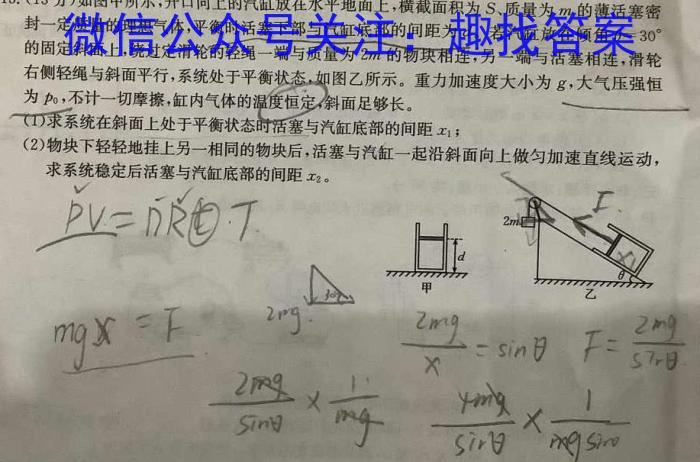 (15分)如图甲所示,开口向上的汽缸放在水平地面上,横截面积为S、质量为m的薄活塞密
封一定
平衡时活塞下部与汽缸底部的间距为
30°
微信公众号关注:趣找答案
的固定斜面上,
轻绳一端与质量为2m的物块相连,另一端与活塞相连,滑轮
右侧轻绳与斜面平行,系统处于平衡状态,如图乙所示。重力加速度大小为g,大气压强恒
为p₀,不计一切摩擦,缸内气体的温度恒定,斜面足够长。
(1)求系统在斜面上处于平衡状态时活塞与汽缸底部的间距x₁;
(2)物块下轻轻地挂上另一相同的物块后,活塞与汽缸一起沿斜面向上做匀加速直线运动,
求系统稳定后活塞与汽缸底部的间距x₂。
PV=nR·T
2m
F
d
甲
θ
乙
30°
2mg
mg = F
2mg/x = sinθ
F = 2mg/sinθ
2mg/sinθ × 1/mg
4mg/sinθ × 1/mg sinθ